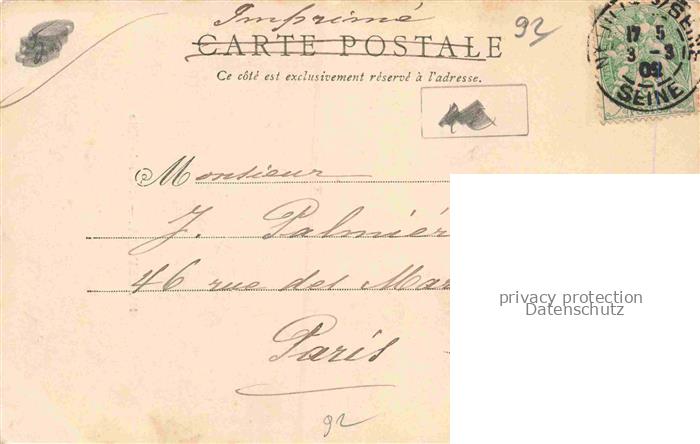 Imprimé
92
CARTE POSTALE
Ce côté est exclusivement réservé à l'adresse.
17 5
3 - 3
02
SEINE
Monsieur
J. Palmiér
46 rue des Mar
Paris
92
privacy protection
Datenschutz